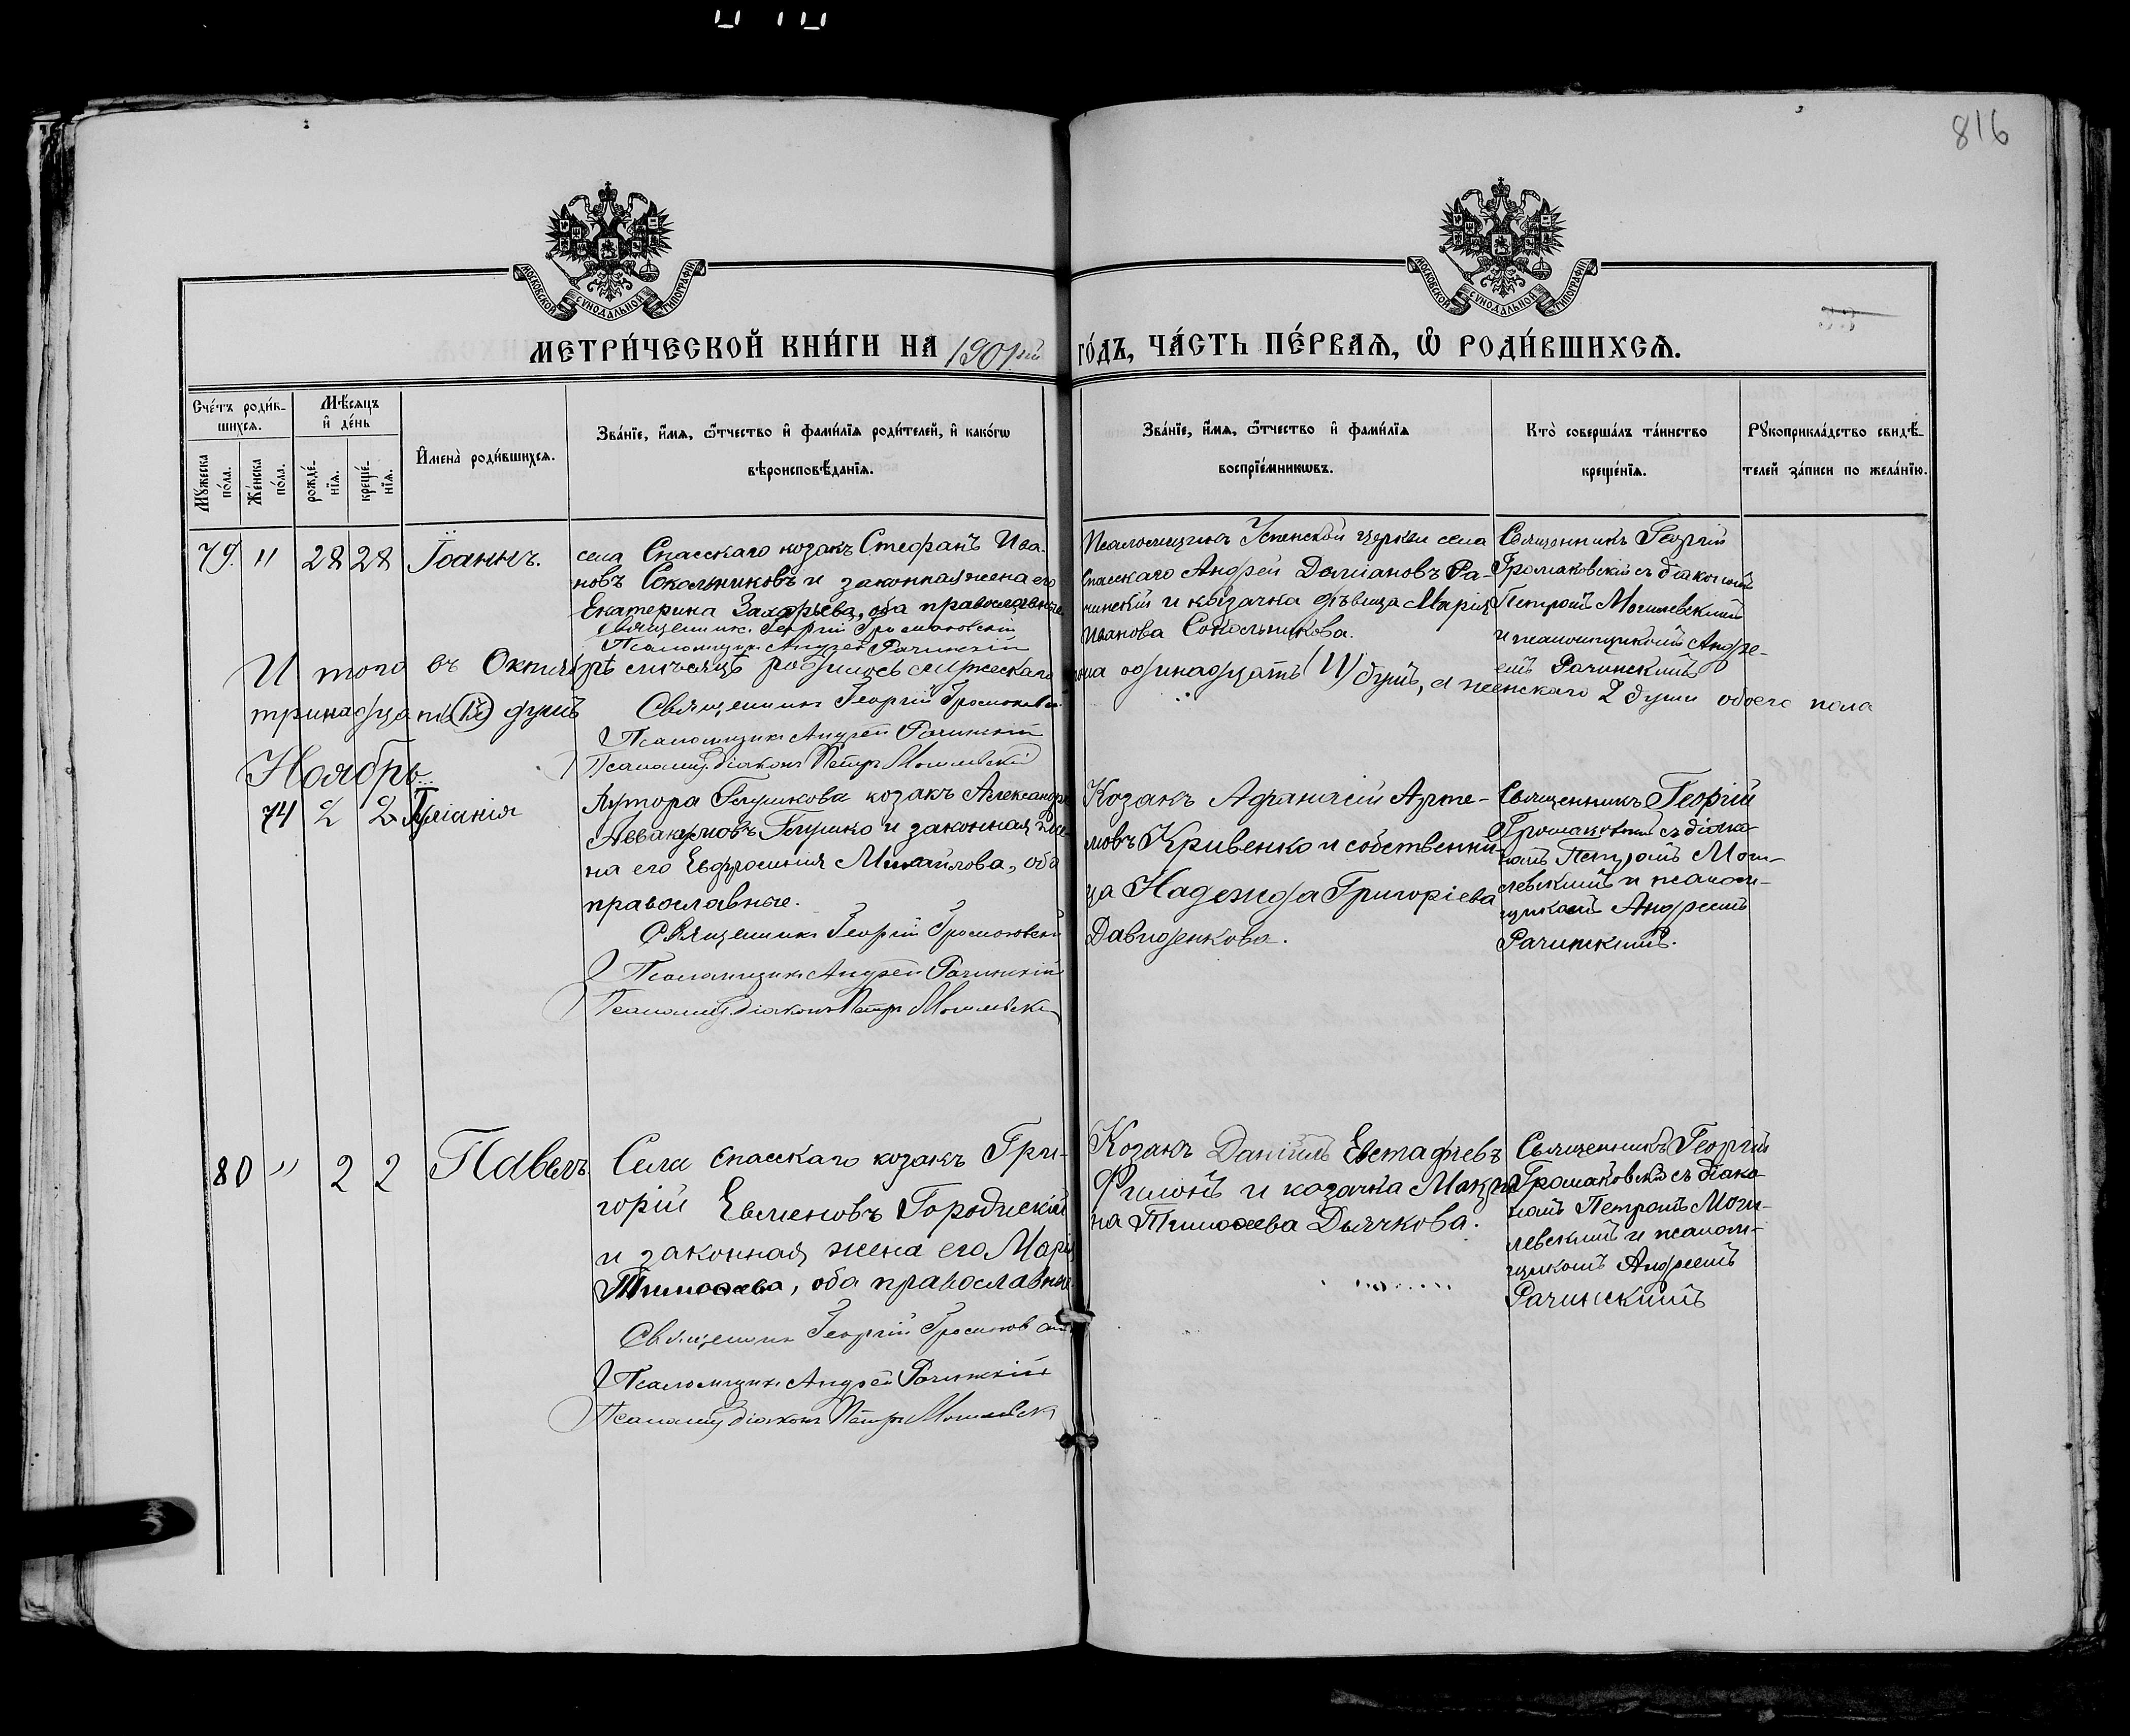 816
МОСКОВСКОЙ СѴНОДАЛЬНОЙ ТИПОГРАФІИ
МОСКОВСКОЙ СѴНОДАЛЬНОЙ ТИПОГРАФІИ
МЕТРИ́ЧЕСКОЙ КНИ́ГИ НА 1901й ГО́ДЪ, ЧА́СТЬ ПЕ́РВАѦ, Ѡ РОДИ́ВШИХСѦ.
Сче́тъ роди́в-
шихсѧ.
Мꙋ́жеска
по́ла.
Же́нска
по́ла.
Мѣ́сѧцъ
и҆ де́нь
рожде́-
нїѧ.
креще́-
нїѧ.
И҆мена̀ роди́вшихсѧ.
Зва́нїе, и҆́мѧ, ѻ҆́тчество и҆ фами́лїѧ роди́телей, и҆ како́гѡ
вѣроисповѣ́данїѧ.
Зва́нїе, и҆́мѧ, ѻ҆́тчество и҆ фами́лїѧ
воспрїе́мникѡвъ.
Кто̀ соверша́лъ та́инство
креще́нїѧ.
Рꙋкоприкла́дство свидѣ́-
телей за́писи по жела́нїю.
79. " 28 28 Іоаннъ.
села Спасскаго козакъ Стефанъ Ива-
новъ Сокольниковъ и законная жена его
Екатерина Захарьева, оба православные
Священникъ Георгій Громаковскій
Псаломщикъ Андрей Рачинскій
Псаломщикъ Успенской церкви села
Спасскаго Андрей Даміановъ Ра-
чинскій и козачка дѣвица Марія
Иванова Сокольникова.
Священникъ Георгій
Громаковскій съ діакономъ
Петромъ Могилевскимъ
и псаломщикомъ Андре-
емъ Рачинскимъ
Итого въ Октябрѣ мѣсяцѣ родилось мужескаго пола одинадцать (11) душъ, а женскаго 2 души обоего пола
тринадцать (13) душъ
Священникъ Георгій Громаковскій
Псаломщикъ Андрей Рачинскій
Псаломщ. діаконъ Петръ Могилевскій
Ноябрь
74 2 2 Іуліанія
Хутора Глушкова козакъ Александръ
Аввакумовъ Глушко и законная же-
на его Евфросинія Михайлова, оба
православные.
Священникъ Георгій Громаковскій
Псаломщикъ Андрей Рачинскій
Псаломщ. діаконъ Петръ Могилевскій
Козакъ Афанасій Арте-
мовъ Кривенко и собственни-
ца Надежда Григоріева
Давиденкова.
Священникъ Георгій
Громаковскій съ діако-
номъ Петромъ Моги-
левскимъ и псалом-
щикомъ Андреемъ
Рачинскимъ.
80 " 2 2 Павелъ
Села Спасскаго козакъ Гри-
горій Евменовъ Городискій
и законная жена его Марія
Тимоѳеева, оба православные
Священникъ Георгій Громаковскій
Псаломщикъ Андрей Рачинскій
Псаломщ діаконъ Петръ Могилевск
Козакъ Даніилъ Евстафіевъ
Филонъ и козачка Макри-
на Тимоѳеева Дьячкова.
Священникъ Георгій
Громаковскій съ діако-
номъ Петромъ Моги-
левскимъ и псалом-
щикомъ Андреемъ
Рачинскимъ